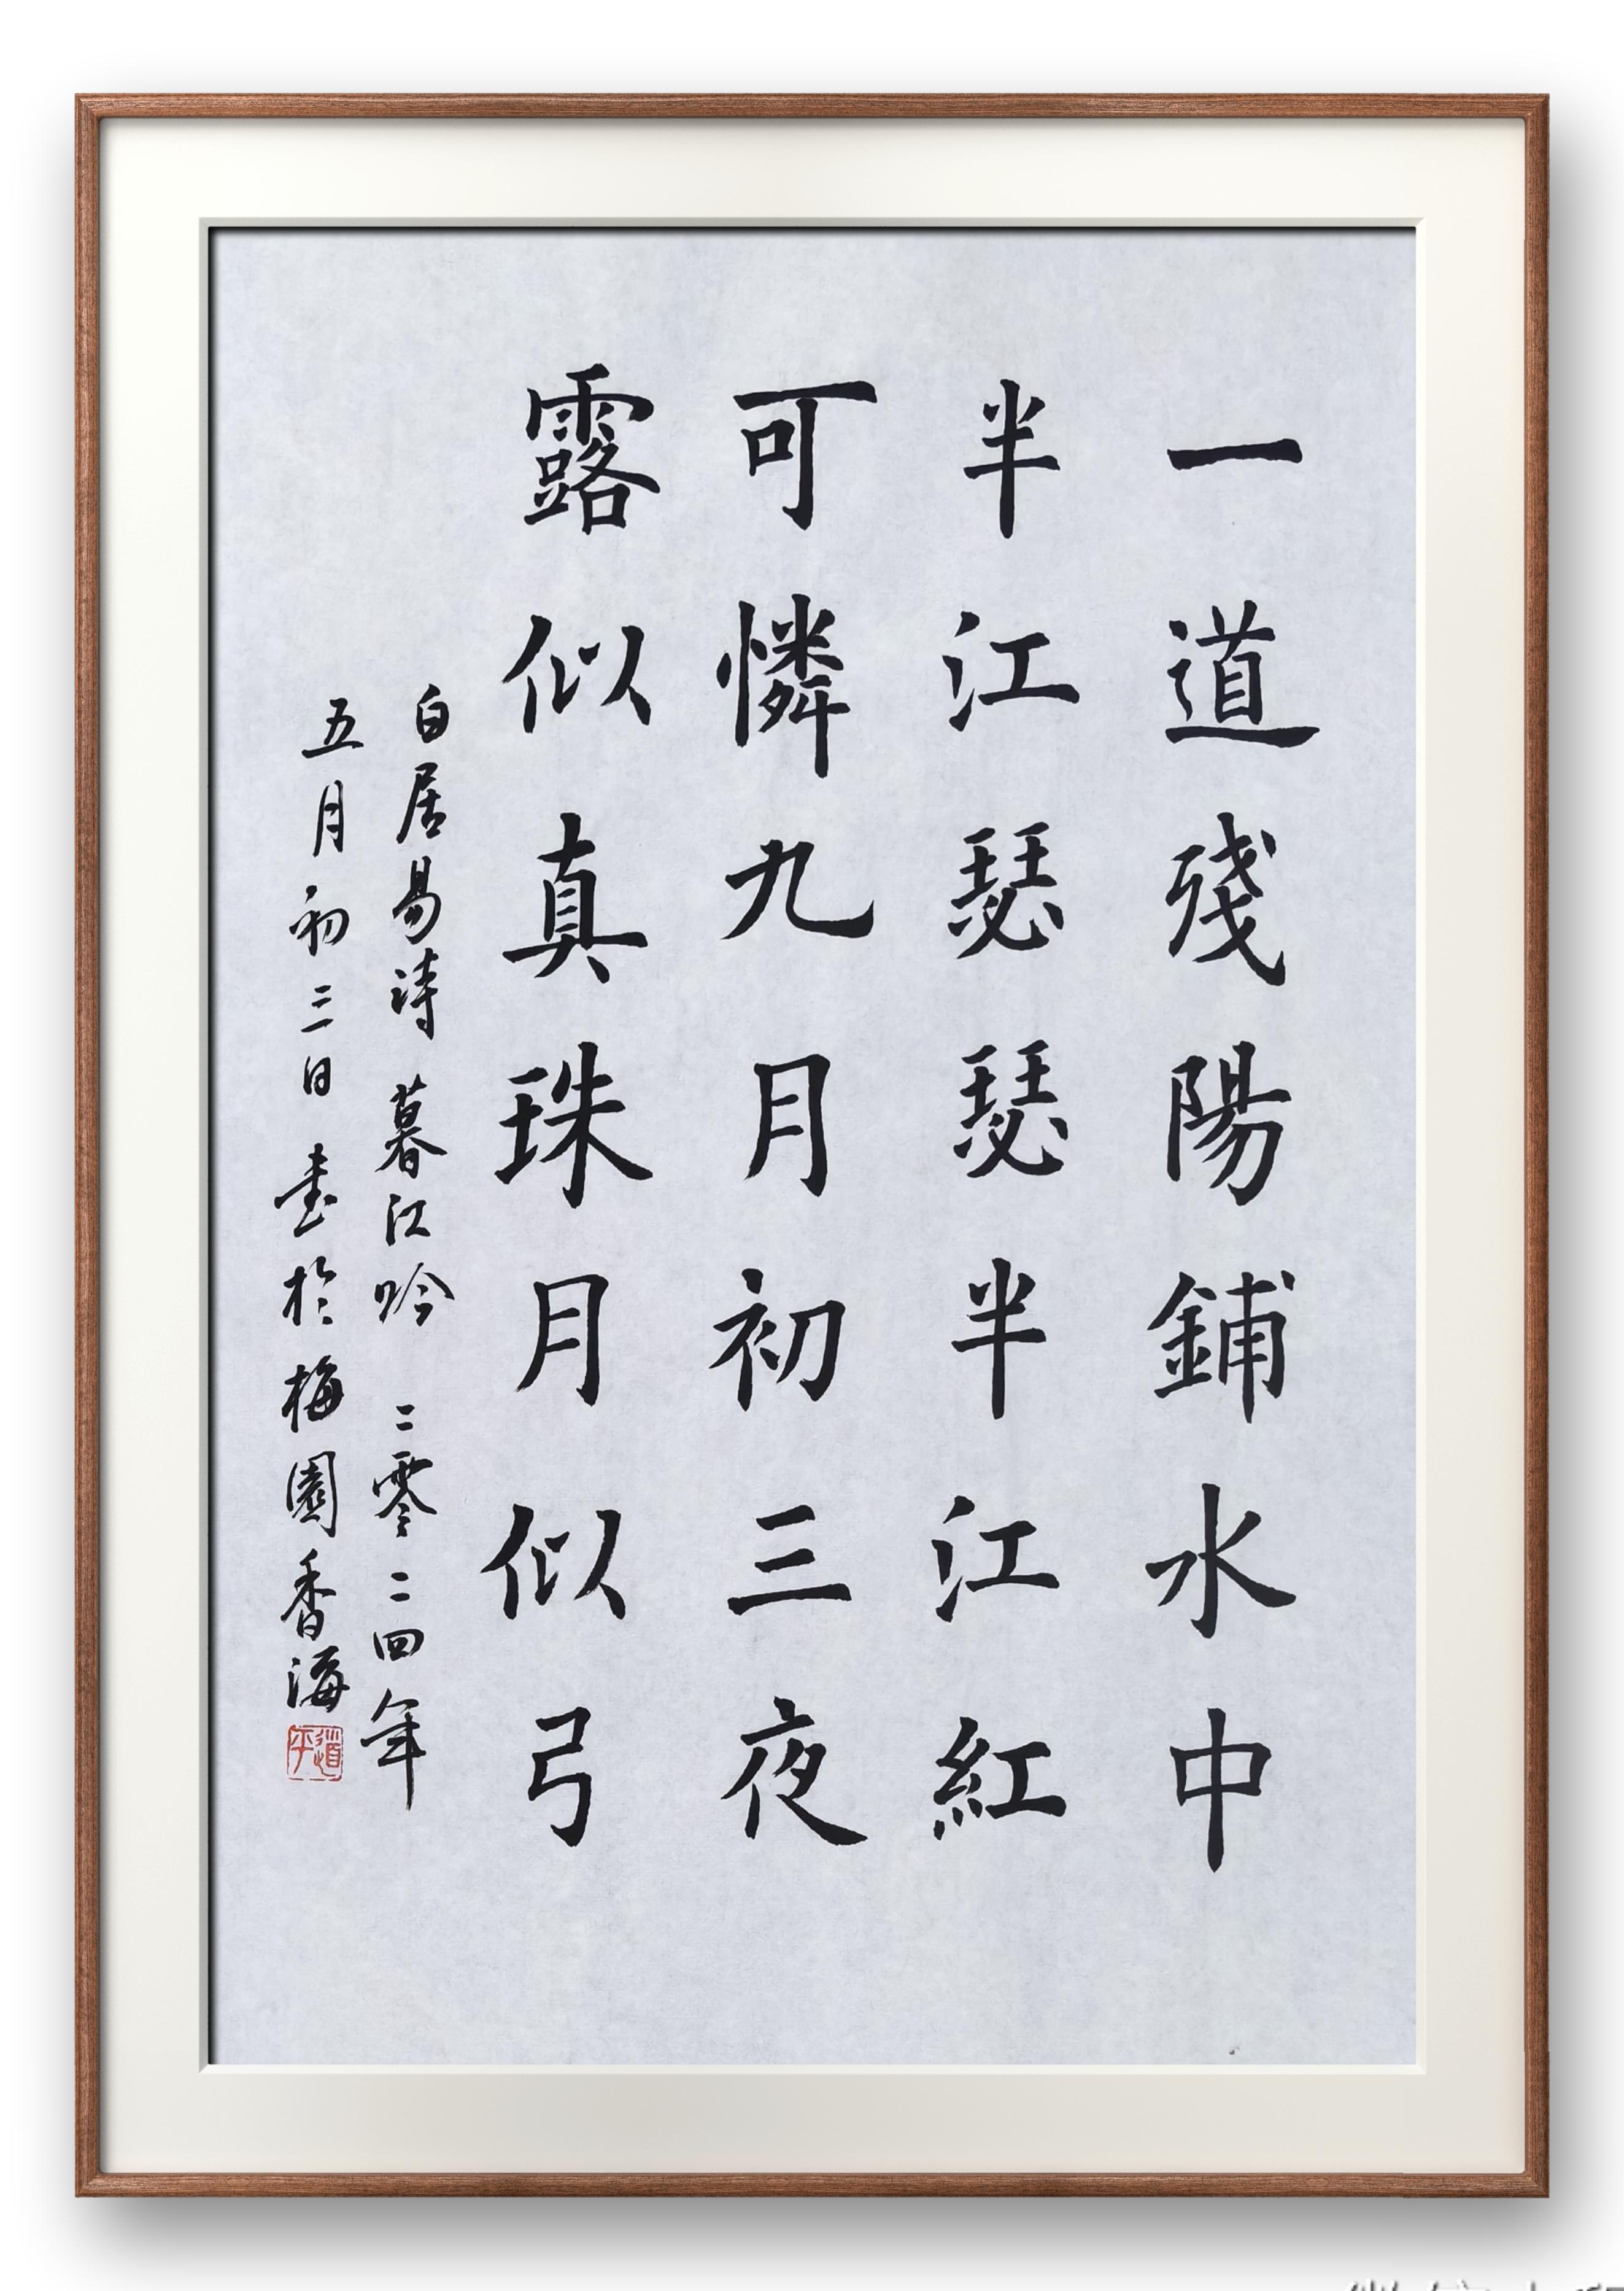 一道殘陽鋪水中
半江瑟瑟半江紅
可憐九月初三夜
露似真珠月似弓
白居易詩 暮江吟 二零二四年
五月初三日 書於梅園香海
道平